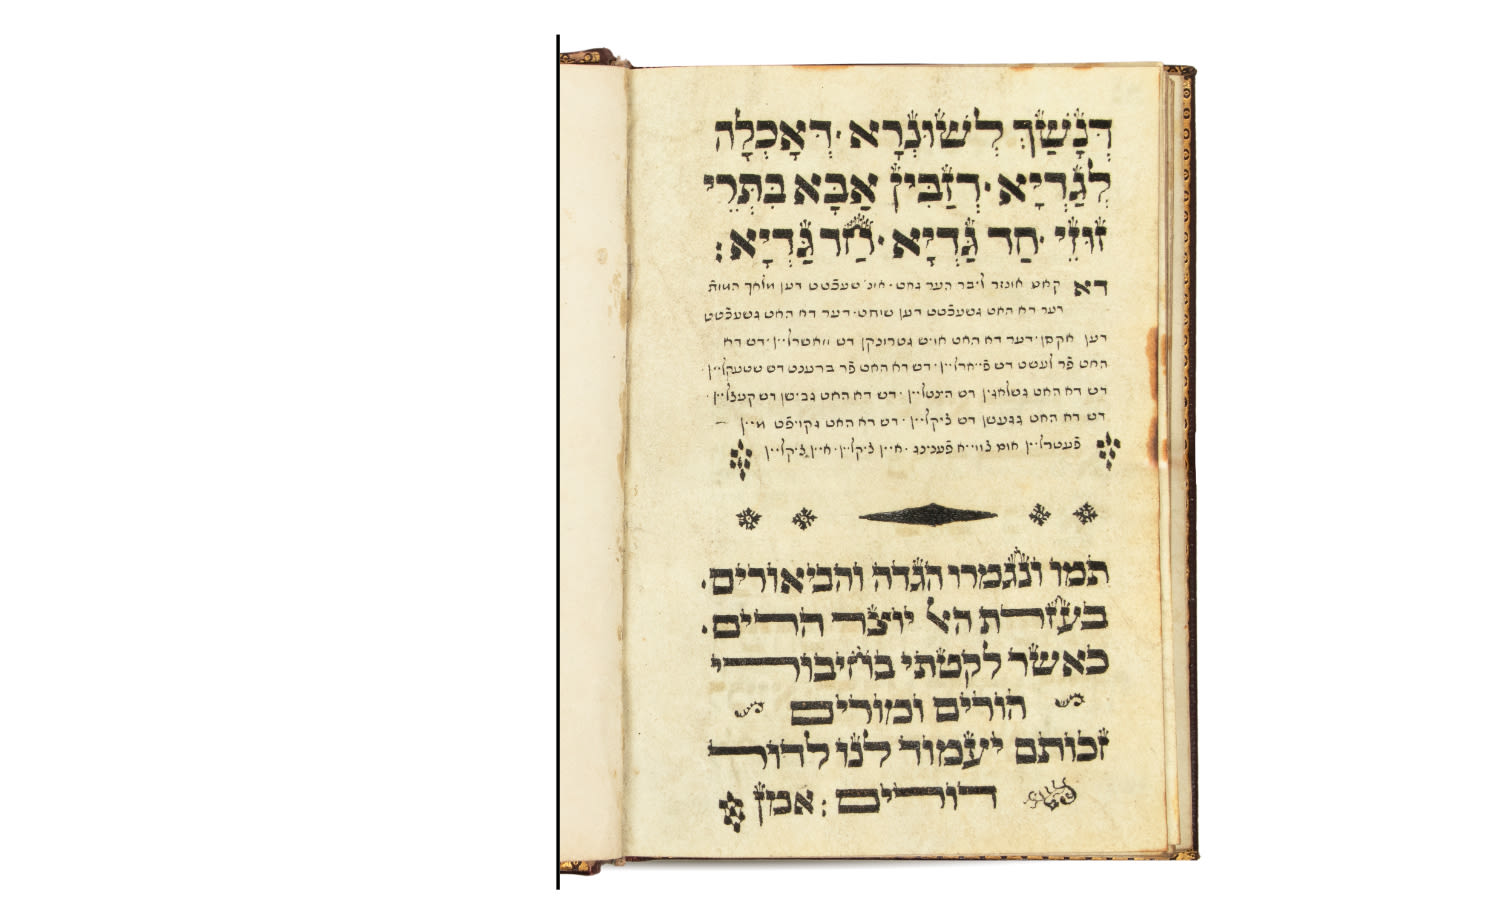 דְּנָשַׁךְ לְשׁוּנְרָא · דְּאָכְלָה
לְגַדְיָא · דְזַבִּין אַבָּא בִּתְרֵי
זוּזֵי · חַד גַּדְיָא · חַד גַּדְיָא :
דא קאם אונזר ליבר הער גאט · אונ׳ שעכֿטט דען מלאך המות
דער דא האט גשעכֿטט דען שוחט · דער דא האט גשעכֿטט
דען אקסן · דער דא האט אויש גטרונקן דש וואשרליין · דש דא
האט פֿר לעשט דש פֿייארליין · דש דא האט פֿר ברענט דש שטעקליין
דש דא האט גשלאגין דש הינטליין · דש דא האט גבישן דש קעצליין ·
דש דא האט געשן דש ציקליין · דש דא האט גקויפֿט מיין
פֿעטרליין אום צווייא פֿענינג · איין ציקליין · איין ציקליין
תמו ונגמרו הגדה והביאורים ·
בעזרת האל יוצר הרים ·
כאשר לקטתי בחיבורי
הורים ומורים
זכותם יעמוד לנו לדור
דורים : אמן